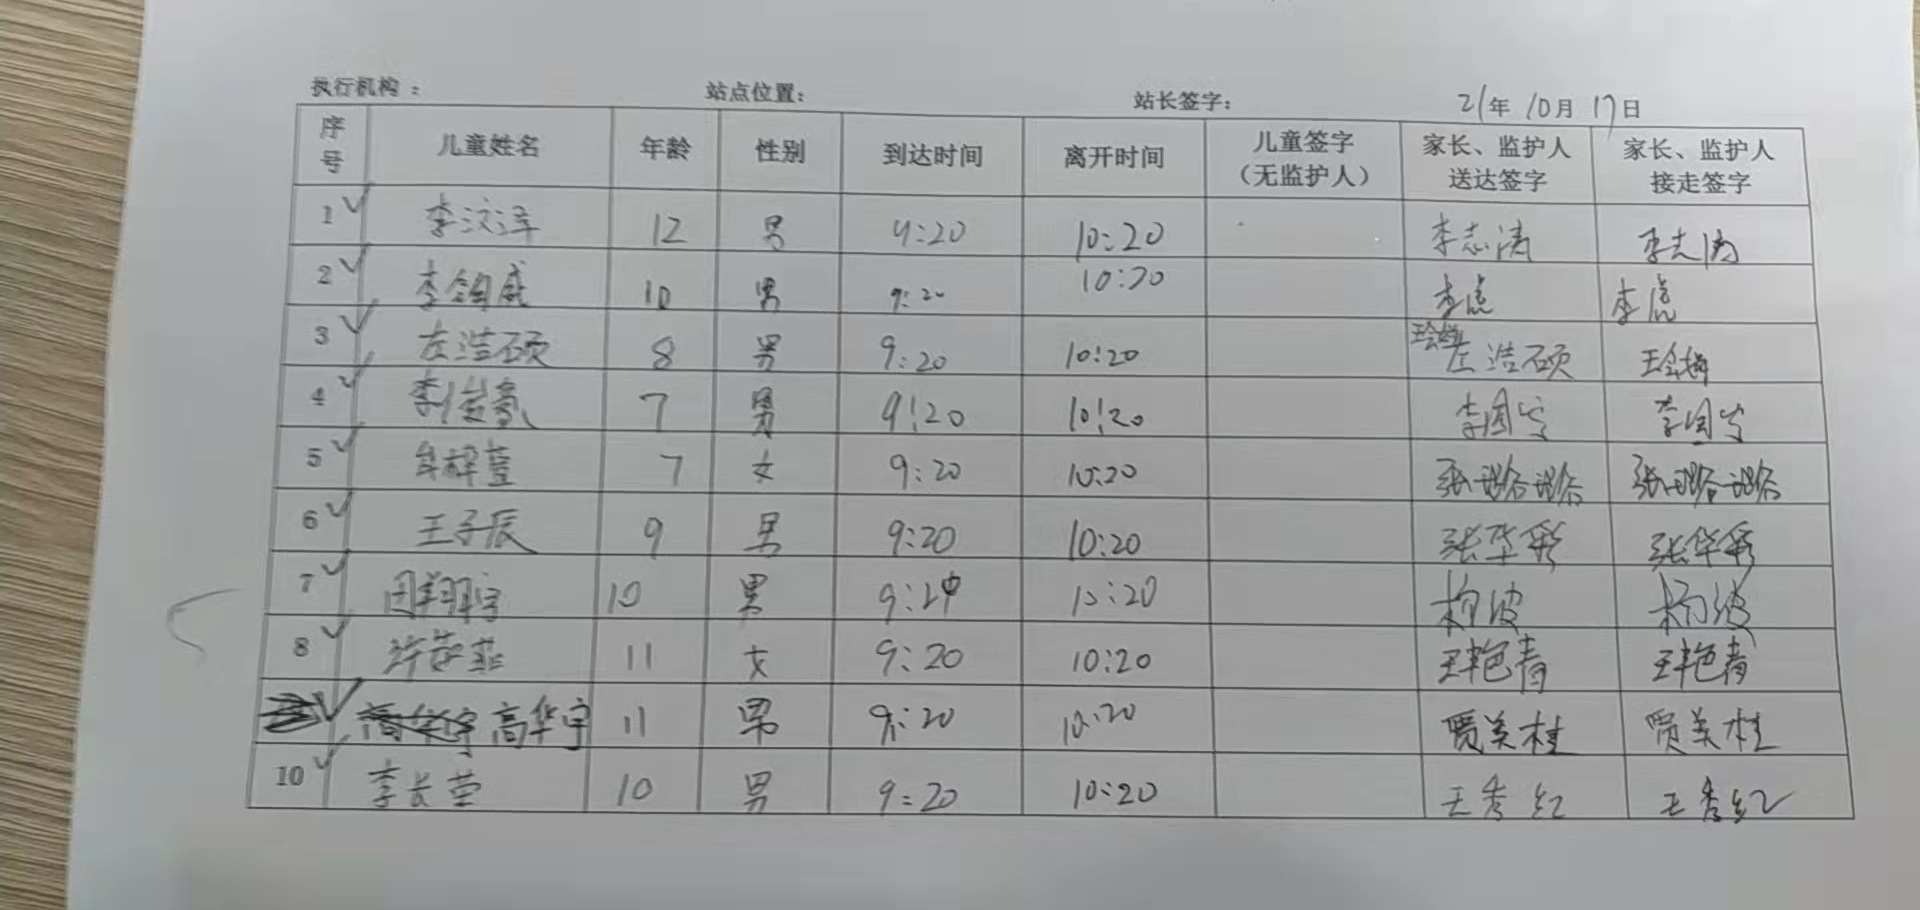 执行机构： 站点位置： 站长签字： 21年10月17日
序号 儿童姓名 年龄 性别 到达时间 离开时间 儿童签字（无监护人） 家长、监护人送达签字 家长、监护人接走签字
1 李汶泽 12 男 9:20 10:20 李志涛 李志涛
2 李钧威 10 男 9:20 10:20 李虎 李虎
3 左浩硕 8 男 9:20 10:20 左浩硕
4 李俊豪 7 男 9!20 10!20
5 7 女 9:20 10:20 张瑢瑢 张瑢瑢
6 王子辰 9 男 9:20 10:20 张华彩 张华彩
7 10 男 10:20 杨波 杨波
8 11 女 9:20 10:20 王艳青 王艳青
高华宇 11 男 9:20 10:20 贾美桂 贾美桂
10 李长莹 10 男 9:20 10:20 王秀红 王秀红